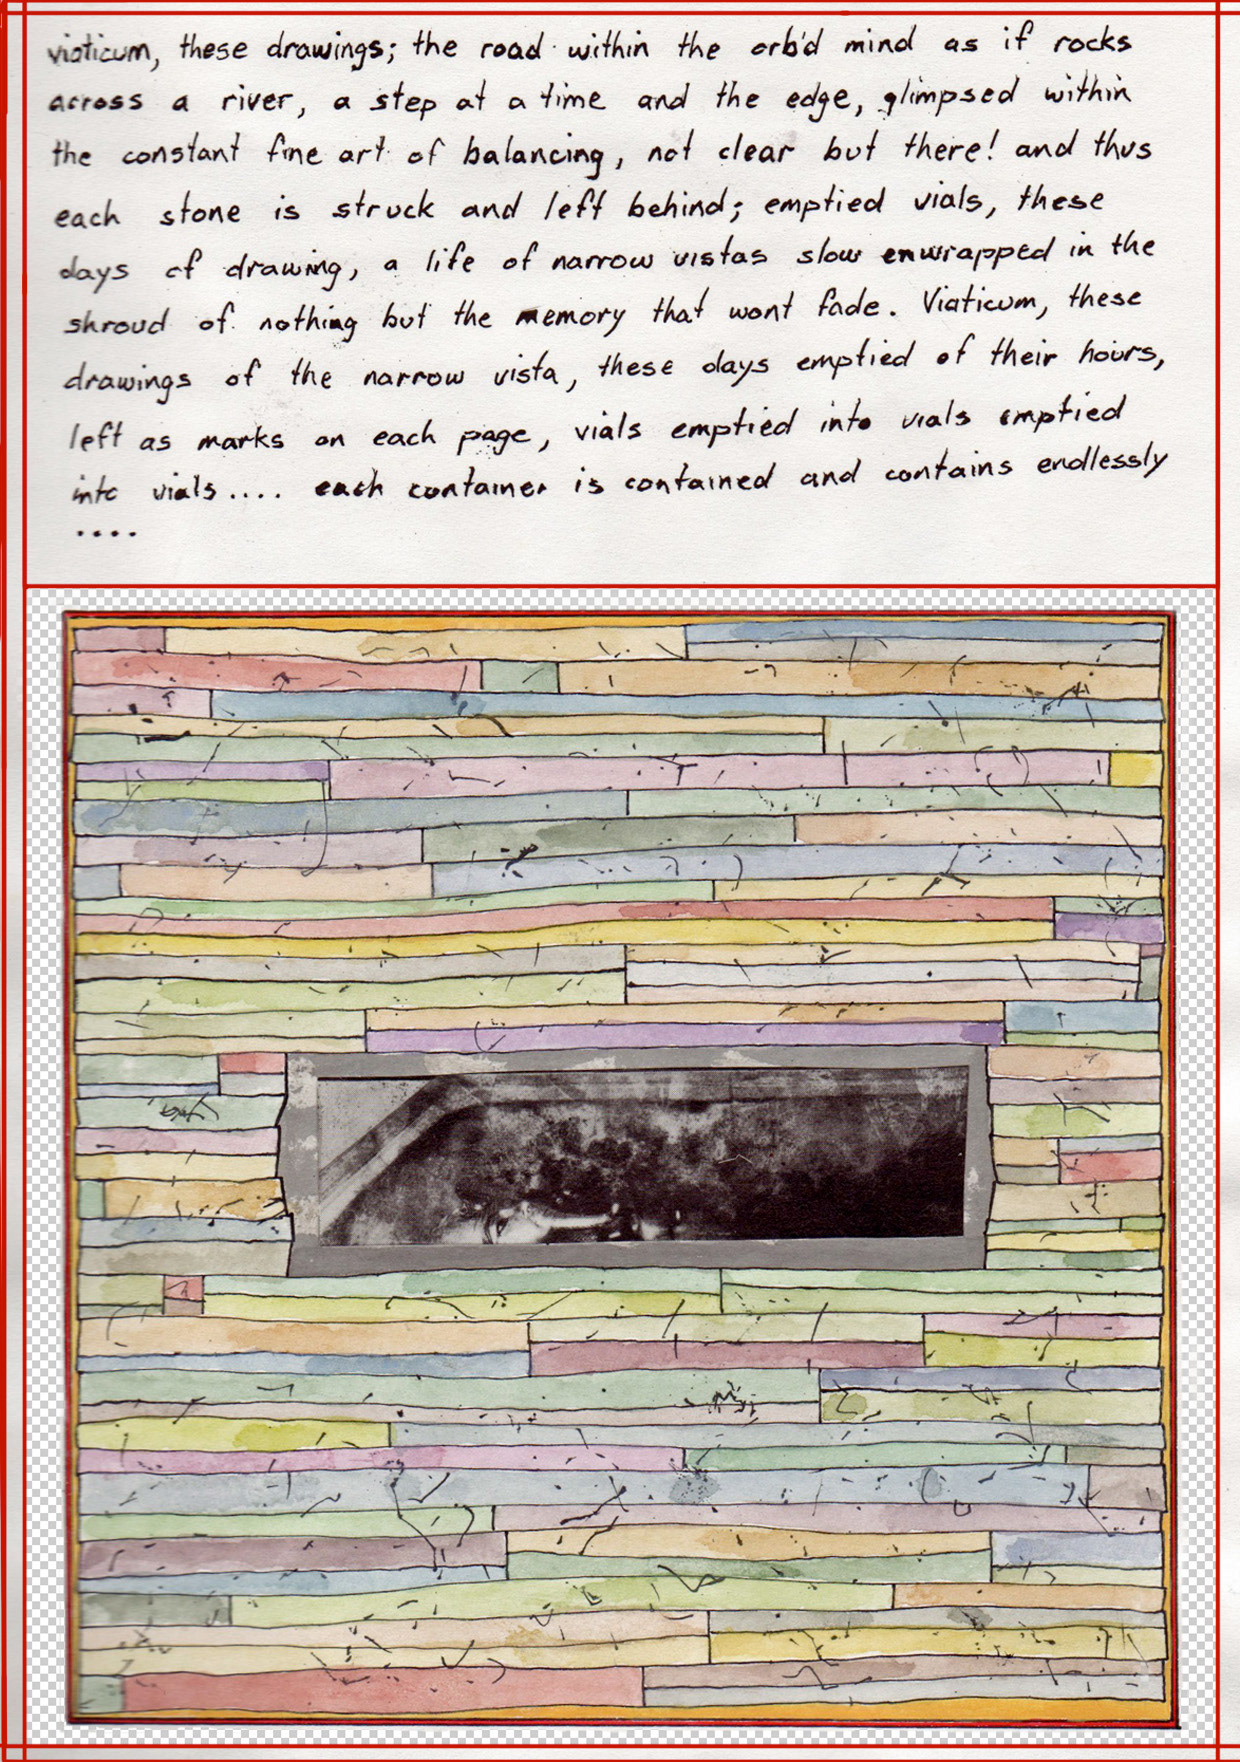 viaticum, these drawings; the road within the orb'd mind as if rocks
across a river, a step at a time and the edge, glimpsed within
the constant fine art of balancing, not clear but there! and thus
each stone is struck and left behind; emptied vials, these
days of drawing, a life of narrow vistas slow enwrapped in the
shroud of nothing but the memory that wont fade. Viaticum, these
drawings of the narrow vista, these days emptied of their hours,
left as marks on each page, vials emptied into vials emptied
into vials.... each container is contained and contains endlessly
....